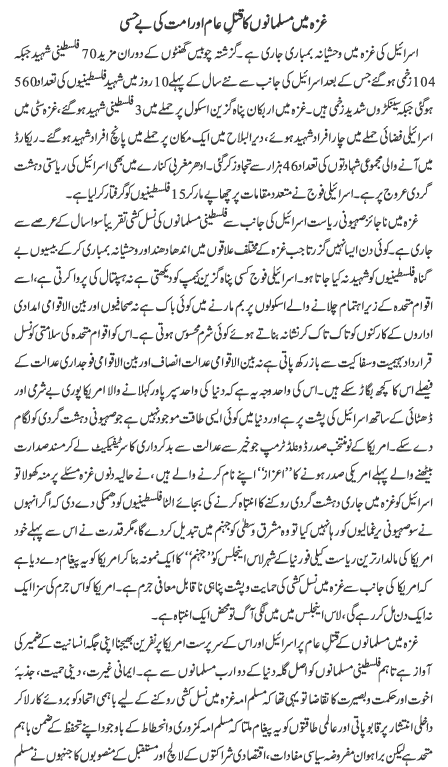 غزہ میں مسلمانوں کا قتلِ عام اور امت کی بے حسی
اسرائیل کی غزہ میں وحشیانہ بمباری جاری ہے۔ گزشتہ چوبیس گھنٹوں کے دوران مزید 70 فلسطینی شہید جبکہ
104 زخمی ہو گئے جس کے بعد اسرائیل کی جانب سے نئے سال کے پہلے 10 روز میں شہید فلسطینیوں کی تعداد 560
ہو گئی جبکہ سینکڑوں شدید زخمی ہیں۔ غزہ میں ارکان پناہ گزین اسکول پر حملے میں 3 فلسطینی شہید ہو گئے، غزہ سٹی میں
اسرائیلی فضائی حملے میں چار افراد شہید ہوئے، دیر البلاح میں ایک مکان پر حملے میں پانچ افراد شہید ہو گئے۔ ریکارڈ
میں آنے والی مجموعی شہادتوں کی تعداد 46 ہزار سے تجاوز کر گئی۔ ادھر مغربی کنارے میں بھی اسرائیل کی ریاستی دہشت
گردی عروج پر ہے۔ اسرائیلی فوج نے متعدد مقامات پر چھاپے مار کر 15 فلسطینیوں کو گرفتار کر لیا ہے۔
غزہ میں ناجائز صہیونی ریاست اسرائیل کی جانب سے فلسطینی مسلمانوں کی نسل کشی تقریباً سوا سال کے عرصے سے
جاری ہے۔ کوئی دن ایسا نہیں گزرتا جب غزہ کے مختلف علاقوں میں اندھا دھند اور وحشیانہ بمباری کر کے بیسیوں بے
گناہ فلسطینیوں کو شہید نہ کیا جاتا ہو۔ اسرائیلی فوج کسی پناہ گزین کیمپ کو دیکھتی ہے نہ ہسپتال کی پروا کرتی ہے، اسے
اقوام متحدہ کے زیر اہتمام چلانے والے اسکولوں پر بم مارنے میں کوئی باک ہے نہ صحافیوں اور بین الاقوامی امدادی
اداروں کے کارکنوں کو تاک تاک کر نشانہ بناتے ہوئے کوئی شرم محسوس ہوتی ہے۔ اس کو اقوام متحدہ کی سلامتی کونسل
قرارداد بہیمیت و سفاکیت سے باز رکھ پاتی ہے نہ بین الاقوامی عدالت انصاف اور بین الاقوامی فوجداری عدالت کے
فیصلے اس کا کچھ بگاڑ سکے ہیں۔ اس کی واحد وجہ یہ ہے کہ دنیا کی واحد سپر پاور کہلانے والا امریکا پوری بے شرمی اور
ڈھٹائی کے ساتھ اسرائیل کی پشت پر ہے اور دنیا میں کوئی ایسی طاقت موجود نہیں ہے جو صہیونی دہشت گردی کو لگام
دے سکے۔ امریکا کے نو منتخب صدر ڈونلڈ ٹرمپ جو خیر سے عدالت سے بدکرداری کا سرٹیفیکیٹ لے کر مسند صدارت
بیٹھنے والے پہلے امریکی صدر ہونے کا ”اعزاز“ اپنے نام کرنے والے ہیں، نے حالیہ دنوں غزہ مسئلے پر منہ کھولا تو
اسرائیل کو غزہ میں جاری دہشت گردی روکنے کا انتباہ کرنے کی بجائے الٹا فلسطینیوں کو دھمکی دے دی کہ اگر انہوں
نے سو صہیونی یرغمالیوں کو رہا نہیں کیا تو وہ مشرق وسطیٰ کو جہنم میں تبدیل کر دے گا، مگر قدرت نے اس سے پہلے خود
امریکا کی مالدار ترین ریاست کیلی فورنیا کے شہر لاس اینجلس کو ”جہنم“ کا ایک نمونہ بنا کر امریکا کو یہ پیغام دے دیا ہے
کہ امریکا کی جانب سے غزہ میں نسل کشی کی حمایت و پشت پناہی ناقابل معافی جرم ہے۔ امریکا کو اس جرم کی سزا ایک
نہ ایک دن مل کر رہے گی، لاس اینجلس میں میں لگی آگ تو محض ایک انتباہ ہے۔
غزہ میں مسلمانوں کے قتل عام پر اسرائیل اور اس کے سرپرست امریکا پر نفرین بھیجنا اپنی جگہ انسانیت کے ضمیر کی
آواز ہے تاہم فلسطینی مسلمانوں کو اصل گلہ دنیا کے دو ارب مسلمانوں سے ہے۔ ایمانی غیرت، دینی حمیت، جذبۂ
اخوت اور حکمت و بصیرت کا تقاضا تو یہی تھا کہ مسلم امہ غزہ میں نسل کشی روکنے کے لیے باہمی اتحاد کو بروئے کار لا کر
داخلی انتشار پر قابو پاتی اور عالمی طاقتوں کو یہ پیغام ملتا کہ مسلم امہ کمزوری و انحطاط کے باوجود اپنے تحفظ کے ضمن باہم
متحد ہے لیکن برا ہو ان مفروضہ سیاسی مفادات، اقتصادی شراکتوں کے لالچ اور مستقبل کے منصوبوں کا جنہوں نے مسلم